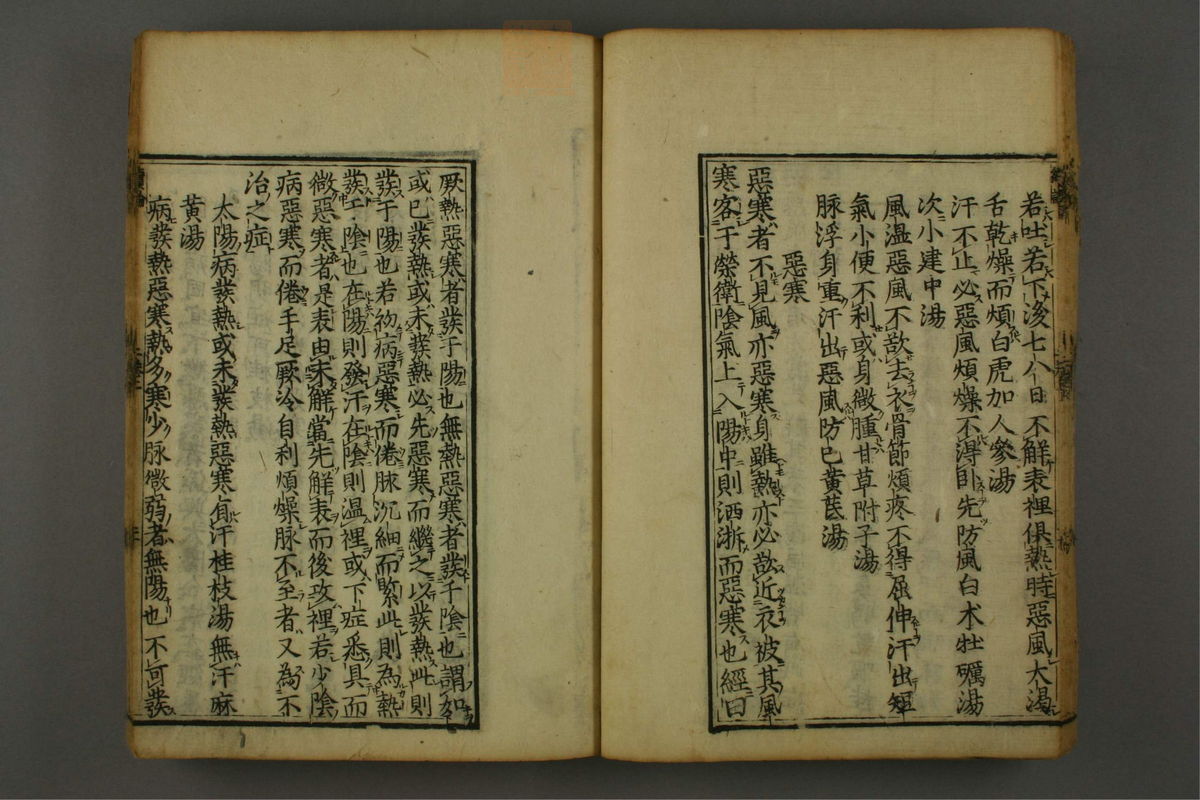 若吐若下後七八日不解表裡俱熱時惡風大渴
舌乾燥而煩白虎加人參湯
汗不止必惡風煩燥不得臥先防風白朮牡礪湯
次小建中湯
風溫惡風不欲去衣骨節煩疼不得屈伸汗出短
氣小便不利或身微腫甘草附子湯
脉浮身重汗出惡風防已黃芪湯
惡寒
惡寒者不見風亦惡寒身雖熱亦必欲近衣被其風
寒客于榮衛陰氣上入陽中則洒淅而惡寒也經曰
厥熱惡寒者發于陽也無熱惡寒者發于陰也謂如
或已發熱或未發熱必先惡寒而繼之以發熱此則
發于陽也若初病惡寒而倦脉沉細而緊此則為熱
發于陰也在陽則發汗在陰則温裡或下症悉具而
微惡寒者是表由未解當先解表而後攻裡若少陰
病惡寒而倦手足厥冷自利煩燥脉不至者又為不
治之症
太陽病發熱或未發熱惡寒有汗桂枝湯無汗麻
黃湯
病發熱惡寒熱多寒少脉微弱者無陽也不可發